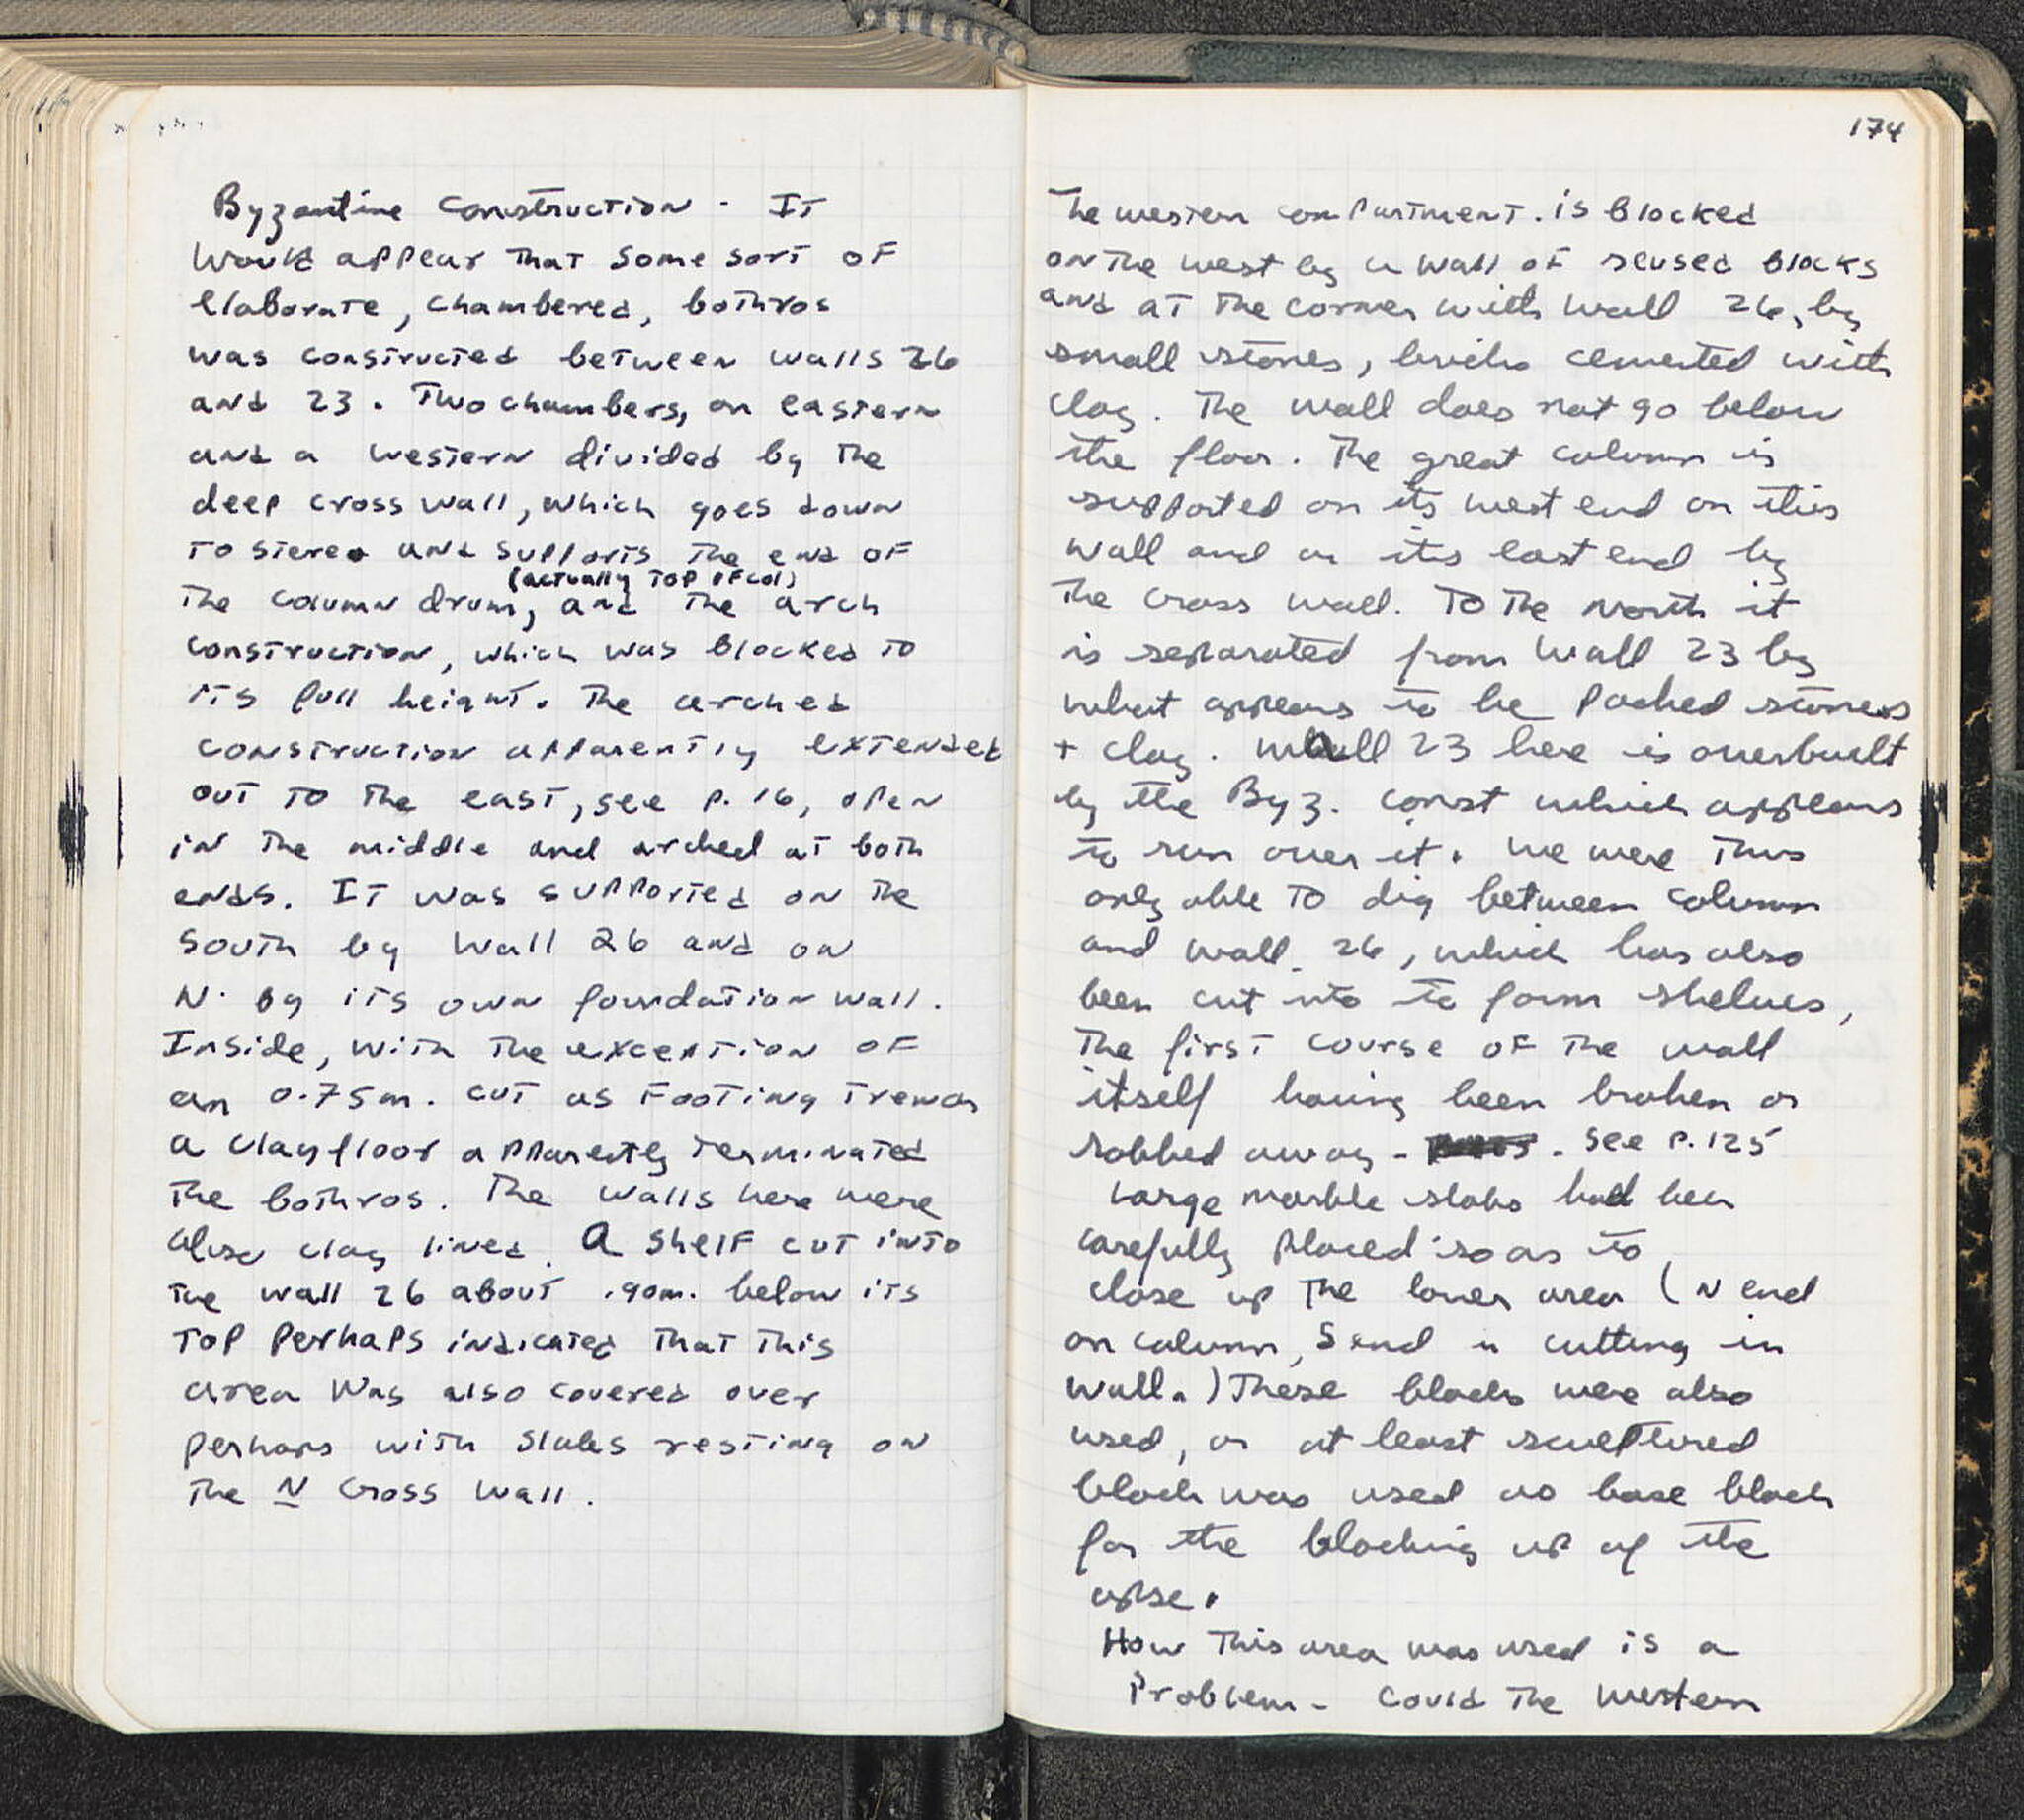 Byzantine Construction - It
would appear that some sort of
elaborate, chambered, bothros
was constructed between walls 26
and 23. Two chambers, an eastern
and a western divided by the
deep cross wall, which goes down
to stereo and supports the end of
(actually top of col)
the column drum, and the arch
construction, which was blocked to
its full height. The arched
construction apparently extended
out to the east, see p. 16, open
in the middle and arched at both
ends. It was supported on the
south by wall 26 and on
N. by its own foundation wall.
Inside, with the exception of
an 0.75m. cut as footing trench
a clay floor apparently terminated
the bothros. The walls here were
also clay lined. A shelf cut into
the wall 26 about .90m. below its
top perhaps indicated that this
area was also covered over
perhaps with slabs resting on
the N cross wall.
174
The western compartment. is blocked
on the west by a wall of reused blocks
and at the corner with wall 26, by
small stones, bricks cemented with
clay. The wall does not go below
the floor. The great column is
supported on its west end on this
wall and on its east end by
the cross wall. To the north it
is separated from wall 23 by
what appears to be packed stones
+ clay. Wall 23 here is overbuilt
by the Byz. const which appears
to run over it. We were thus
only able to dig between column
and wall 26, which has also
been cut into to form shelves,
the first course of the wall
itself having been broken or
robbed away - . see p. 125
Large marble slabs had been
carefully placed so as to
close up the lower area (N end
on column, S end in cutting in
wall.) These blocks were also
used, or at least sculptured
block was used as base block
for the blocking up of the
apse.
How this area was used is a
problem - Could the western